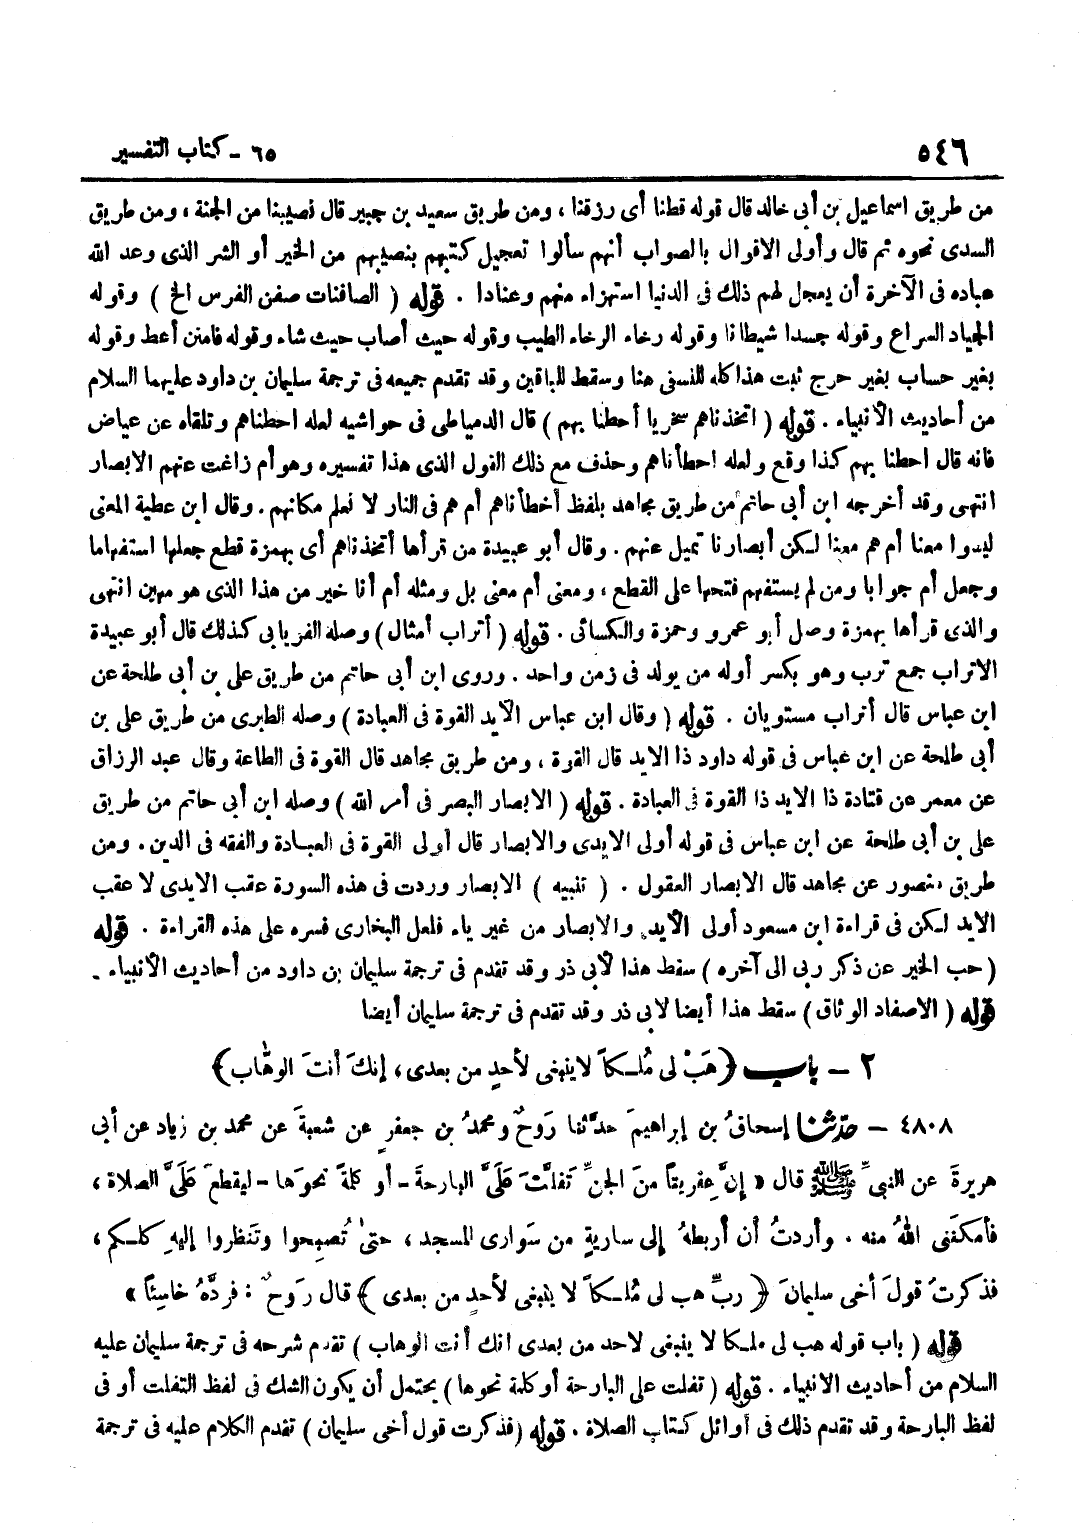 ٥٤٦
٦٥ - كتاب التفسير
من طريق اسماعيل بن أبى خالد قال قوله قطنا أى رزقنا ، ومن طريق سعيد بن جبير قال نصيبنا من الجنة ، ومن طريق
السدى نحوه ثم قال وأولى الاقوال بالصواب أنهم سألوا تعجيل كتبهم بنصيبهم من الخير أو الشر الذى وعد الله
عباده فى الآخرة أن يعجل لهم ذلك فى الدنيا استهزاء منهم وعنادا . قوله ( الصافنات صفن الفرس الخ ) وقوله
الجياد السراع وقوله جسدا شيطانا وقوله رخاء الرخاء الطيب وقوله حيث أصاب حيث شاء وقوله فامنن أعط وقوله
بغير حساب بغير حرج ثبت هذا كله للنسفى هنا وسقط للباقين وقد تقدم جميعه فى ترجمة سليمان بن داود عليهما السلام
من أحاديث الأنبياء . قوله ( اتخذناهم سخريا أحطنا بهم ) قال الدمياطى فى حواشيه لعله احطناهم وتلقاه عن عياض
فانه قال احطنا بهم كذا وقع ولعله احطأناهم وحذف مع ذلك القول الذى هذا تفسيره وهو أم زاغت عنهم الابصار
انتهى وقد أخرجه ابن أبى حاتم من طريق مجاهد بلفظ أخطأناهم أم هم فى النار لا نعلم مكانهم . وقال ابن عطية المعنى
ليدوا معنا أم هم معنا لكن أبصارنا تميل عنهم . وقال أبو عبيدة من قرأها أتخذناهم أى بهمزة قطع جعلها استفهاما
وجعل أم جوابا ومن لم يستفهم فتحها على القطع ، ومعنى أم معنى بل ومثله أم أنا خير من هذا الذى هو مهين انتهى
والذى قرأها بهمزة وصل أبو عمرو وحمزة والكسائى . قوله ( أتراب أمثال ) وصله الفريابى كذلك قال أبو عبيدة
الاتراب جمع ترب وهو بكسر أوله من يولد فى زمن واحد . وروى ابن أبى حاتم من طريق على بن أبى طلحة عن
ابن عباس قال أتراب مستويان . قوله ( وقال ابن عباس الأيد القوة فى العبادة ) وصله الطبرى من طريق على بن
أبى طلحة عن ابن عباس فى قوله داود ذا الايد قال القوة ، ومن طريق مجاهد قال القوة فى الطاعة وقال عبد الرزاق
عن معمر عن قتادة ذا الايد ذا القوة فى العبادة . قوله ( الابصار البصر فى أمر الله ) وصله ابن أبى حاتم من طريق
على بن أبى طلحة عن ابن عباس فى قوله أولى الايدى والابصار قال أولى القوة فى العبادة والفقه فى الدين . ومن
طريق منصور عن مجاهد قال الابصار العقول . ( تنبيه ) الابصار وردت فى هذه السورة عقب الايدى لا عقب
الايد لكن فى قراءة ابن مسعود أولى الأيد والابصار من غير ياء فلعل البخارى فسره على هذه القراءة . قوله
( حب الخير عن ذكر ربى الى آخره ) سقط هذا لأبى ذر وقد تقدم فى ترجمة سليمان بن داود من أحاديث الأنبياء .
قوله ( الاصفاد الوثاق ) سقط هذا أيضا لابى ذر وقد تقدم فى ترجمة سليمان أيضا
٢ - باب ﴿ هَبْ لى مُلـكاً لا ينبغى لأحدٍ من بعدى ، إنكَ أنتَ الوهَّاب ﴾
٤٨٠٨ - حدثنا إسحاقُ بن إبراهيمَ حدَّثنا رَوحٌ ومحمدُ بن جعفرٍ عن شعبةَ عن محمد بن زياد عن أبى
هريرةَ عن النبىِّ ﷺ قال « إنَّ عِفريتاً منَ الجنِّ تَفلَّتَ علَىَّ البارحةَ - أو كلمةً نحوَها - ليقطعَ علَىَّ الصلاة ،
فأمكنَنى اللهُ منه . وأردتُ أن أربطهُ إلى ساريةٍ من سَوارى المسجد ، حتىٰ تُصبحوا وتَنظروا إليهِ كلـكم ،
فذكرتُ قولَ أخى سليمانَ ﴿ ربِّ هب لى مُلـكاً لا ينبغى لأحدٍ من بعدى ﴾ قال رَوحٌ : فردَّهُ خاسِئاً »
قوله ( باب قوله هب لى ملكا لا ينبغى لاحد من بعدى انك أنت الوهاب ) تقدم شرحه فى ترجمة سليمان عليه
السلام من أحاديث الانبياء . قوله ( تفلت على البارحة أو كلمة نحوها ) يحتمل أن يكون الشك فى لفظ التفلت أو فى
لفظ البارحة وقد تقدم ذلك فى أوائل كتاب الصلاة . قوله ( فذكرت قول أخى سليمان ) تقدم الكلام عليه فى ترجمة